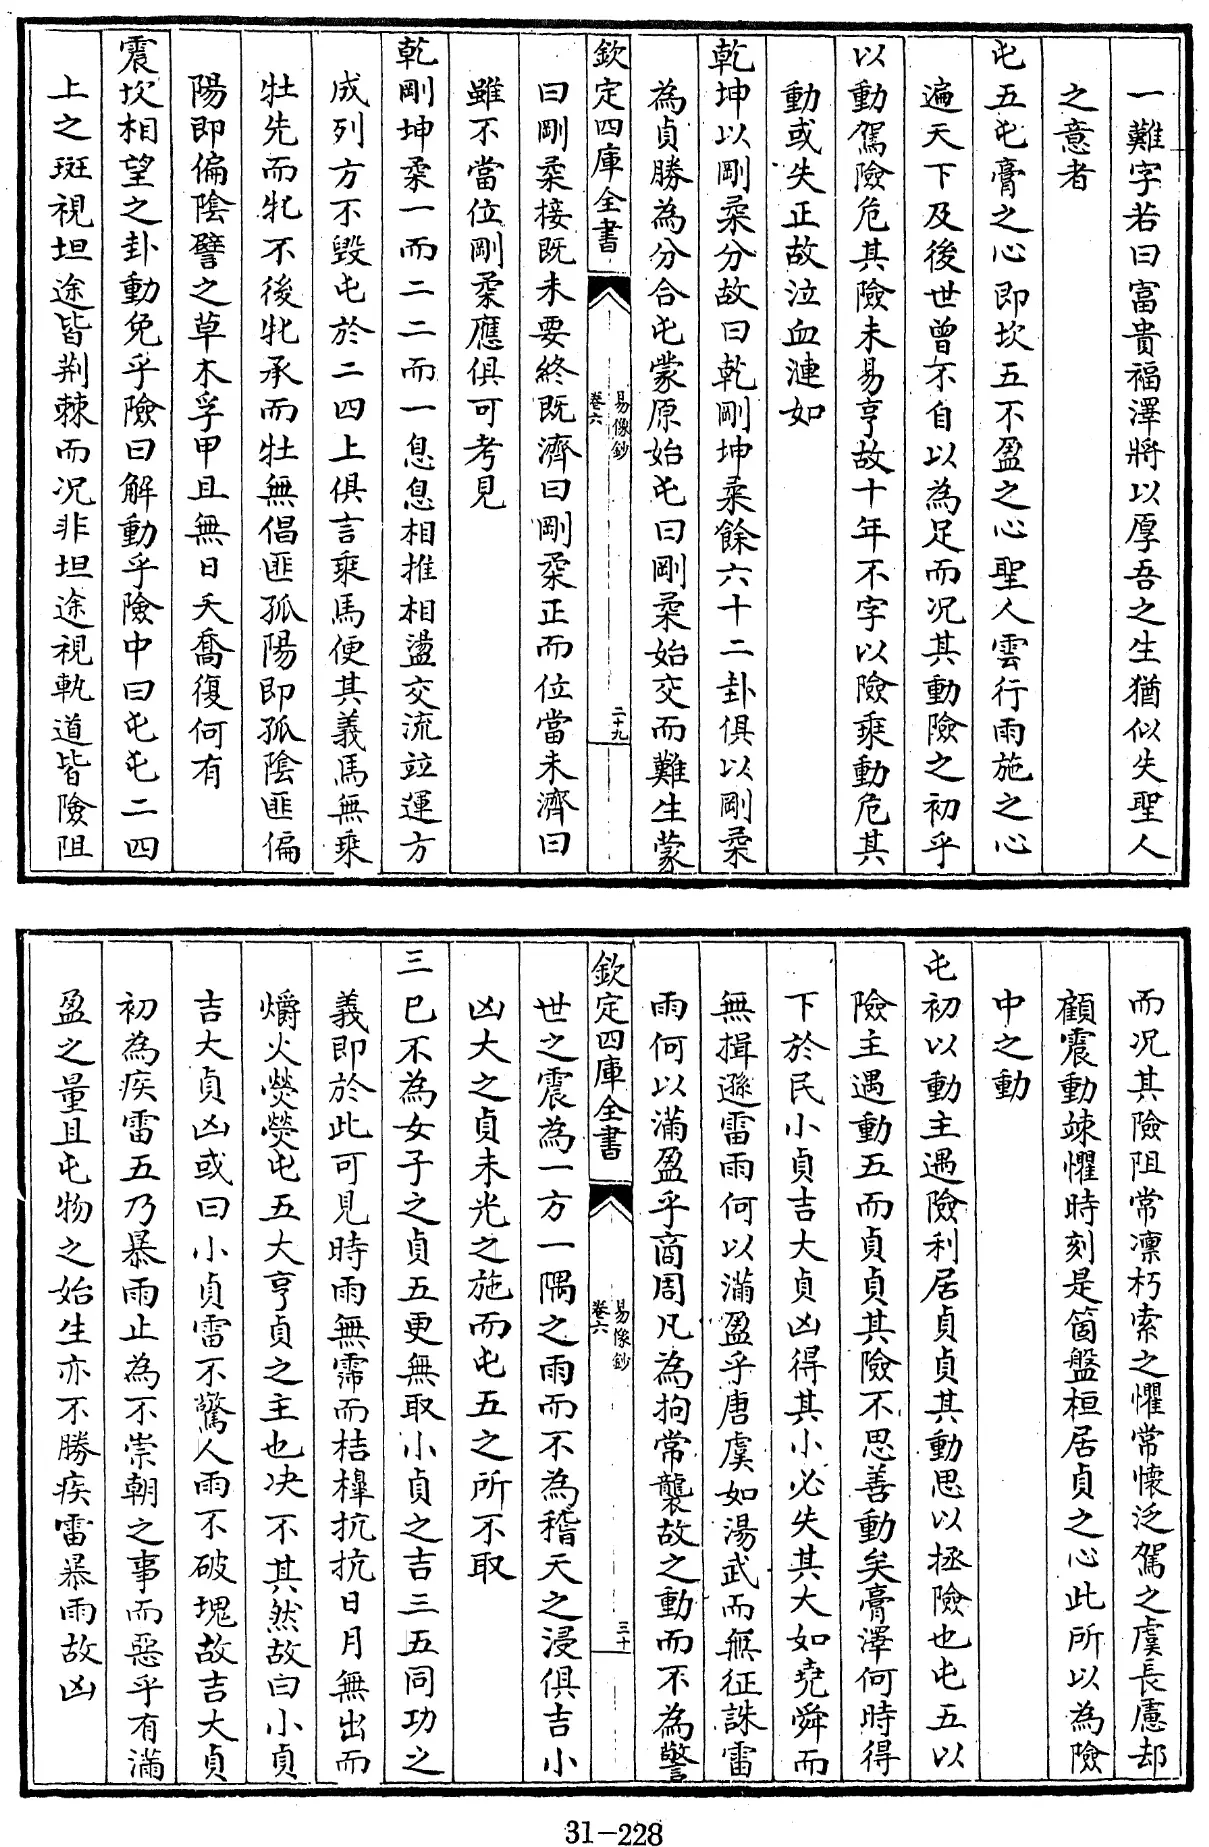 一難字若曰富貴福澤將以厚吾之生猶似失聖人
之意者
屯五屯膏之心即坎五不盈之心聖人雲行雨施之心
遍天下及後世曾不自以為足而况其動險之初乎
以動駕險危其險未易亨故十年不字以險乗動危其
動或失正故泣血漣如
乾坤以剛柔分故曰乾剛坤柔餘六十二卦俱以剛柔
為貞勝為分合屯蒙原始屯曰剛柔始交而難生蒙
欽定四庫全書
易像鈔
卷六
二十九
曰剛柔接既未要終既濟曰剛柔正而位當未濟曰
雖不當位剛柔應俱可考見
乾剛坤柔一而二二而一息息相推相盪交流竝運方
成列方不毀屯於二四上俱言乗馬便其義馬無乗
牡先而牝不後牝承而牡無倡匪孤陽即孤陰匪偏
陽即偏陰譬之草木孚甲且無日夭喬復何有
震坎相望之卦動免乎險曰解動乎險中曰屯屯二四
上之班視坦途皆荆棘而况非坦途視軌道皆險阻
而况其險阻常凛朽索之懼常懷泛駕之虞長慮却
顧震動竦懼時刻是箇盤桓居貞之心此所以為險
中之動
屯初以動主遇險利居貞貞其動思以拯險也屯五以
險主遇動五而貞貞其險不思善動矣膏澤何時得
下於民小貞吉大貞凶得其小必失其大如堯舜而
無揖遜雷雨何以滿盈乎唐虞如湯武而無征誅雷
雨何以滿盈乎商周凡為拘常襲故之動而不為警
欽定四庫全書
易像鈔
卷六
三十
世之震為一方一隅之雨而不為稽天之浸俱吉小
凶大之貞未光之施而屯五之所不取
三已不為女子之貞五更無取小貞之吉三五同功之
義即於此可見時雨無霈而桔槹抗抗日月無出而
爝火熒熒屯五大亨貞之主也决不其然故曰小貞
吉大貞凶或曰小貞雷不驚人雨不破塊故吉大貞
初為疾雷五乃暴雨止為不崇朝之事而惡乎有滿
盈之量且屯物之始生亦不勝疾雷暴雨故凶
31-228